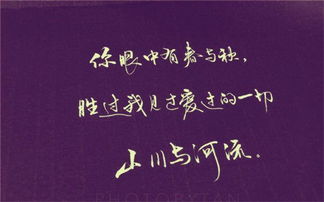 你眼中有春与秋，
胜过我见过爱过的一切
山川与河流．